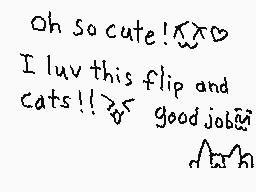 Oh so cute!
I luv this flip and
cats!!
good job